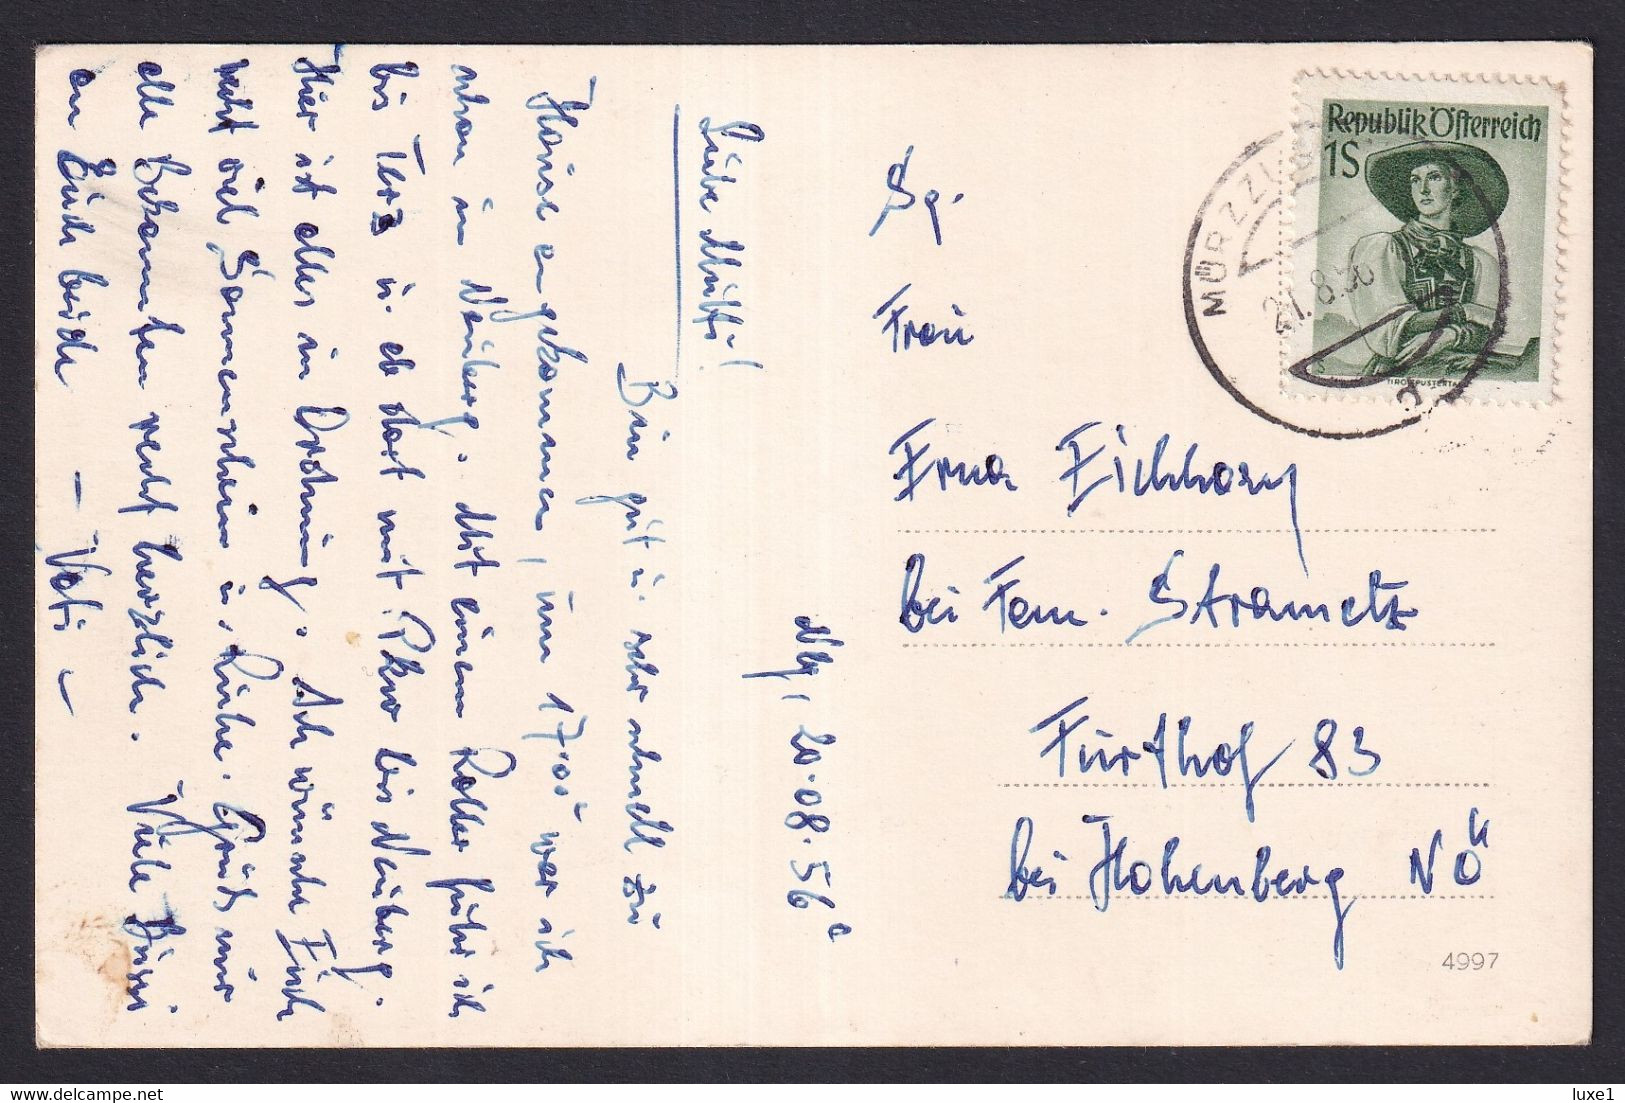 Nbg, 20.08.56
Liebe Mutti!
Bin gut u. sehr schnell zu
Hause angekommen, um 17.05 war ich
schon in Neuberg. Mit einem Roller fuhr ich
bis Terz u. ab dort mit Pkw bis Neuberg.
Hier ist alles in Ordnung. Ich wünsche Euch
recht viel Sonnenschein u. Ruhe. Grüß mir
alle Bekannten recht herzlich. Viele Bussi
an Euch beide
- Vati -
Sg.
Frau
Erna Eichhorn
bei Fam. Strametz
Furthof 83
bei Hohenberg NÖ
4997
Republik Österreich
1S
TIROL, PUSTERTAL
MÜRZZU
21.8.56
luxe1